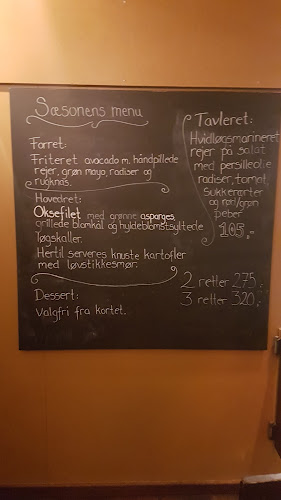 Sæsonens menu
Forret:
Friteret avocado m. håndpillede
rejer, grøn mayo, radiser og
rugknas.
Hovedret:
Oksefilet med grønne asparges,
grillede blomkål og hyldeblomstsyltede
løgskaller.
Hertil serveres knuste kartofler
med løvstikkesmør.
Dessert:
Valgfri fra kortet.
Tavleret:
Hvidløgsmarineret
rejer på salat
med persilleolie
radiser, tomat,
sukkerærter
og rød/grøn
peber
105,-
2 retter 275,-
3 retter 320,-